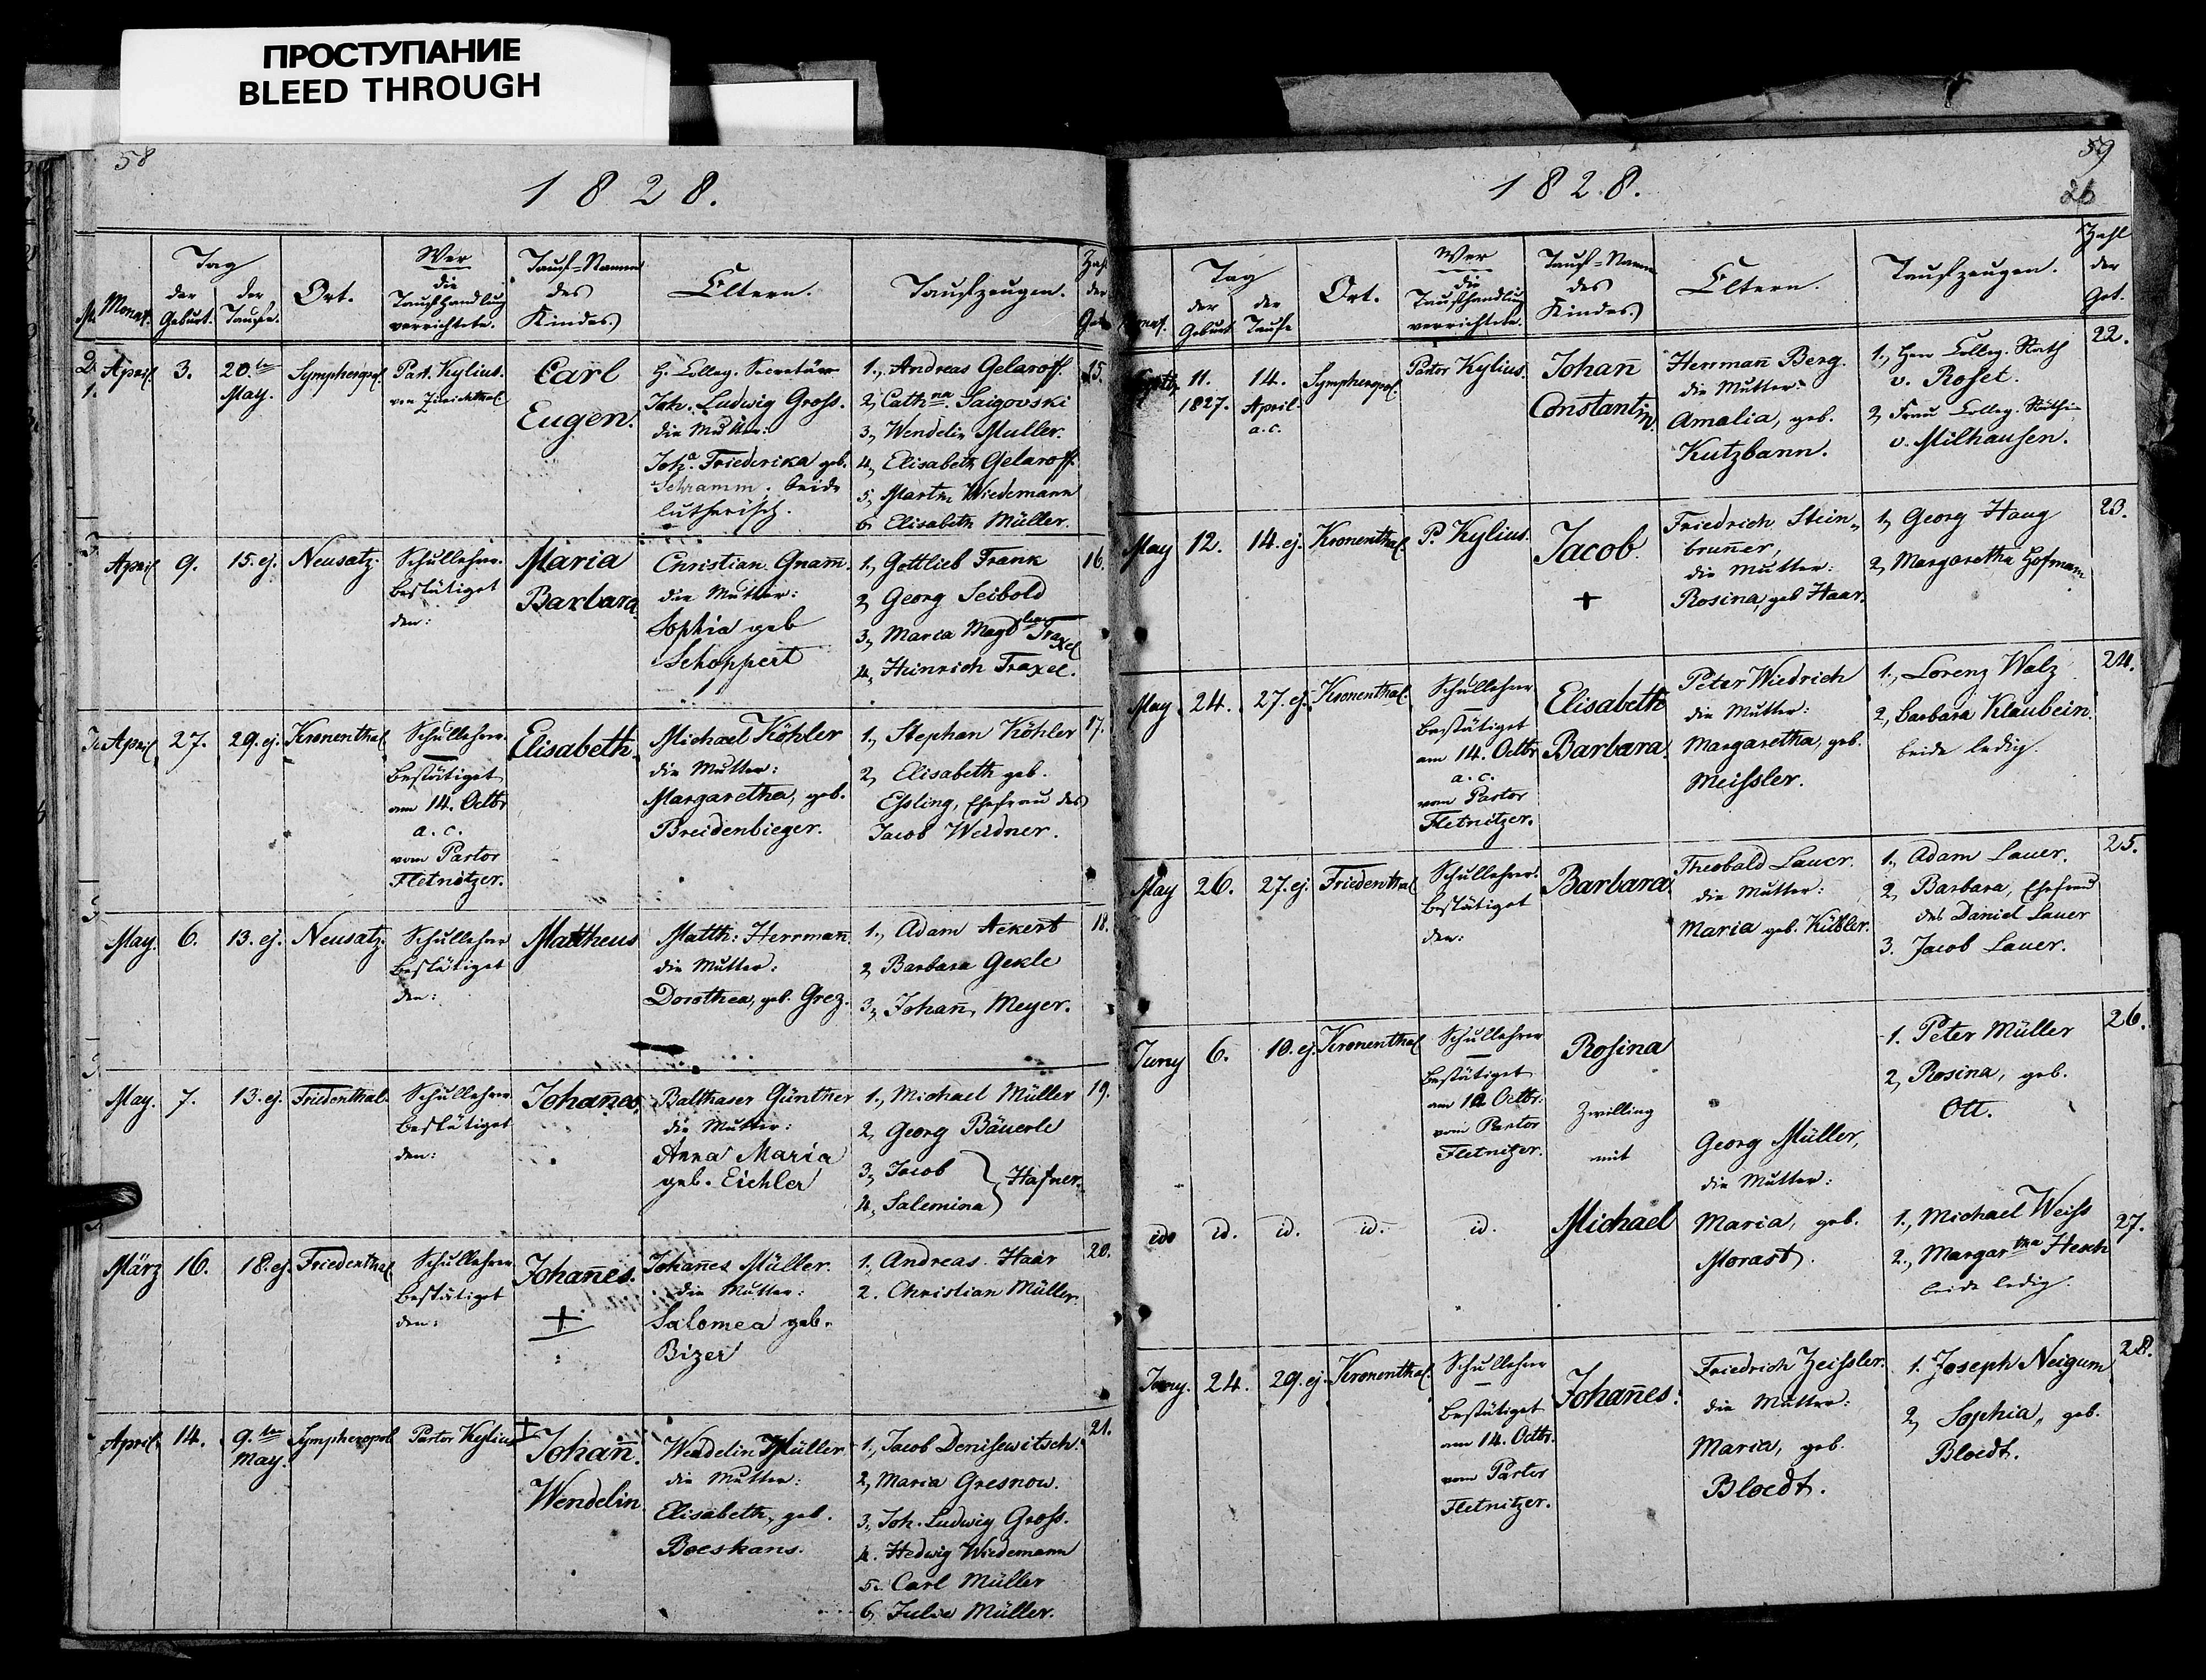 ПРОСТУПАНИЕ
BLEED THROUGH
58
1828.
Monat.
Tag
der Geburt.
der Taufe.
Ort.
Wer
die
Taufhandlung
verrichtete.
Tauf-Namen
des
Kindes.
Eltern.
Taufzeugen.
Zahl
der
Geb.
April.
3.
20.ten
May.
Sympheropol.
Past. Kylius.
von Zürichthal
Carl
Eugen.
H. Colleg. Secretär
Joh. Ludwig Gross.
die Mutter:
Joh.a Friederika geb.
Schramm. beide
lutherisch.
1., Andreas Gelaroff.
2, Cathna. Saigovski
3, Wendelin Muller.
4, Elisabeth Gelaroff.
5, Martin Wiedemann
6. Elisabeth Müller.
15.
April
9.
15. ej.
Neusatz.
Schullehrer.
bestätiget
den:
Maria
Barbara.
Christian Gnam̄.
die Mutter:
Sophia geb
Schoppert
1., Gottlieb Frank
2, Georg Seibold
3, Maria Magdlena Traxel
4, Heinrich Traxel.
16.
April
27.
29. ej.
Kronenthal
Schullehrer.
bestätiget
am 14. Octbr
a. c.
vom Pastor
Fletnitzer.
Elisabeth.
Michael Köhler
die Mutter:
Margaretha, geb.
Breidenbieger.
1., Stephan Köhler
2, Elisabeth geb.
Essling, Ehefrau des
Jacob Weidner.
17.
May.
6.
13. ej.
Neusatz.
Schullehrer
bestätiget
den:
Mattheus
Matth: Herrman̄.
die Mutter:
Dorothea, geb. Grez.
1., Adam Ackert
2, Barbara Gekle
3, Johan̄ Meyer.
18.
May.
7.
13. ej.
Friedenthal.
Schullehrer.
bestätiget
den:
Johan̄es.
Balthaser Günther
die Mutter:
Anna Maria
geb. Eichler
1., Michael Müller
2, Georg Bäuerle
3, Jacob
4, Salemina } Hafner.
19.
März
16.
18. ej.
Friedenthal
Schullehrer.
bestätiget
den:
Johan̄es.
+
Johan̄es Müller.
die Mutter:
Salomea geb.
Bizer
1. Andreas Haar
2. Christian Müller.
20.
April.
14.
9.ten
May.
Sympheropol
Pastor Kylius
+
Johan̄.
Wendelin.
Wendelin Müller
die Mutter:
Elisabeth, geb.
Boeskans.
1., Jacob Denisewitsch.
2, Maria Gresnow.
3, Joh. Ludwig Gross.
4. Hedwig Wiedemann
5. Carl Müller
6, Julie Müller.
21.
59
26
1828.
Tag
der
Geburt
der
Taufe
Ort.
Wer
die
Taufhandlung
verrichtete.
Tauf-Namen
des
Kindes.
Eltern.
Taufzeugen.
Zahl
der
Geb.
11.
1827.
14.
April.
a. c.
Sympheropol.
Pastor Kylius.
Johan̄
Constantin.
Herrman̄ Berg.
die Mutter:
Amalia, geb.
Kutzbann.
1., Herr Colleg. Rath
v. Roset.
2, Frau Colleg. Räthin
v. Milhausen.
22.
May
12.
14. ej.
Kronenthal.
P. Kylius.
Jacob
+
Friedrich Stein-
brun̄er,
die Mutter:
Rosina, geb Haar.
1, Georg Haug
2, Margaretha Hofmann
23.
May.
24.
27. ej.
Kronenthal.
Schullehrer.
bestätiget
am 14. Octbr
a. c.
vom Pastor
Fletnitzer.
Elisabeth
Barbara.
Peter Wiedrich
die Mutter:
Margaretha, geb.
Meissler.
1., Lorenz Walz
2, Barbara Klaubein.
beide ledig.
24.
May
26.
27. ej.
Friedenthal
Schullehrer.
bestätiget
den:
Barbara.
Theobald Lauer.
die Mutter:
Maria geb. Kübler.
1., Adam Lauer.
2, Barbara, Ehefrau
des Daniel Lauer
3. Jacob Lauer.
25.
Juny
6.
10. ej.
Kronenthal
Schullehrer
bestätiget
am 14 Octbr.
vom Pastor
Fletnitzer.
Rosina
Zwilling
mit
Georg Müller,
die Mutter:
1. Peter Müller
2, Rosina, geb.
Ott.
26.
id.
id.
id.
id.
id.
Michael
Maria, geb.
Morast.
1., Michael Weiss
2., Margartha Hesch
beide ledig.
27.
Juny.
24.
29. ej.
Kronenthal.
Schullehrer
bestätiget
am 14. Octbr.
vom Pastor
Fletnitzer.
Johan̄es.
Friedrich Zeissler.
die Mutter:
Maria, geb.
Bloedt.
1. Joseph Neigum
2, Sophia, geb.
Bloedt.
28.